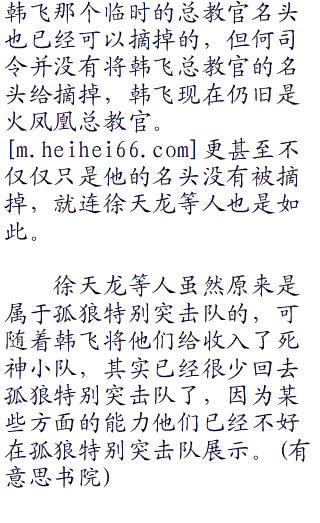 韩飞那个临时的总教官名头
也已经可以摘掉的，但何司
令并没有将韩飞总教官的名
头给摘掉，韩飞现在仍旧是
火凤凰总教官。
[m.heihei66.com]更甚至不
仅仅只是他的名头没有被摘
掉，就连徐天龙等人也是如
此。
徐天龙等人虽然原来是
属于孤狼特别突击队的，可
随着韩飞将他们给收入了死
神小队，其实已经很少回去
孤狼特别突击队了，因为某
些方面的能力他们已经不好
在孤狼特别突击队展示。(有
意思书院)